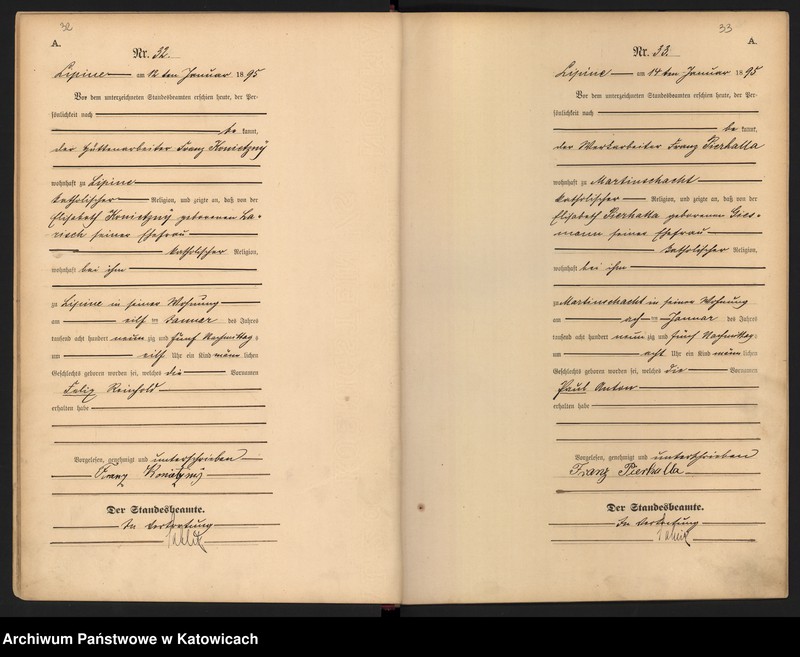 32
A.
Nr. 32.
Lipine am 12 ten Januar 1895
Vor dem unterzeichneten Standesbeamten erschien heute, der Per-
sönlichkeit nach
be kannt,
der Hüttenarbeiter Franz Konietzny
wohnhaft zu Lipine
katholischer Religion, und zeigte an, daß von der
Elisabeth Konietzny geborenen La-
risch seiner Ehefrau
katholischer Religion,
wohnhaft bei ihm
zu Lipine in seiner Wohnung
am eilf ten Januar des Jahres
tausend acht hundert neunzig und fünf Nachmittags
um eilf Uhr ein Kind männlichen
Geschlechts geboren worden sei, welches die Vornamen
Felix Reinhold
erhalten habe
Vorgelesen, genehmigt und unterschrieben
Franz Konietzny
Der Standesbeamte.
In Vertretung
33
A.
Nr. 33.
Lipine am 14 ten Januar 1895
Vor dem unterzeichneten Standesbeamten erschien heute, der Per-
sönlichkeit nach
be kannt,
der Werkarbeiter Franz Pierhalla
wohnhaft zu Martinschacht
katholischer Religion, und zeigte an, daß von der
Elisabeth Pierhalla geborenen Gies-
mann seiner Ehefrau
katholischer Religion,
wohnhaft bei ihm
zu Martinschacht in seiner Wohnung
am ach ten Januar des Jahres
tausend acht hundert neunzig und fünf Nachmittags
um acht Uhr ein Kind männlichen
Geschlechts geboren worden sei, welches die Vornamen
Paul Anton
erhalten habe
Vorgelesen, genehmigt und unterschrieben
Franz Pierhalla
Der Standesbeamte.
In Vertretung
Archiwum Państwowe w Katowicach